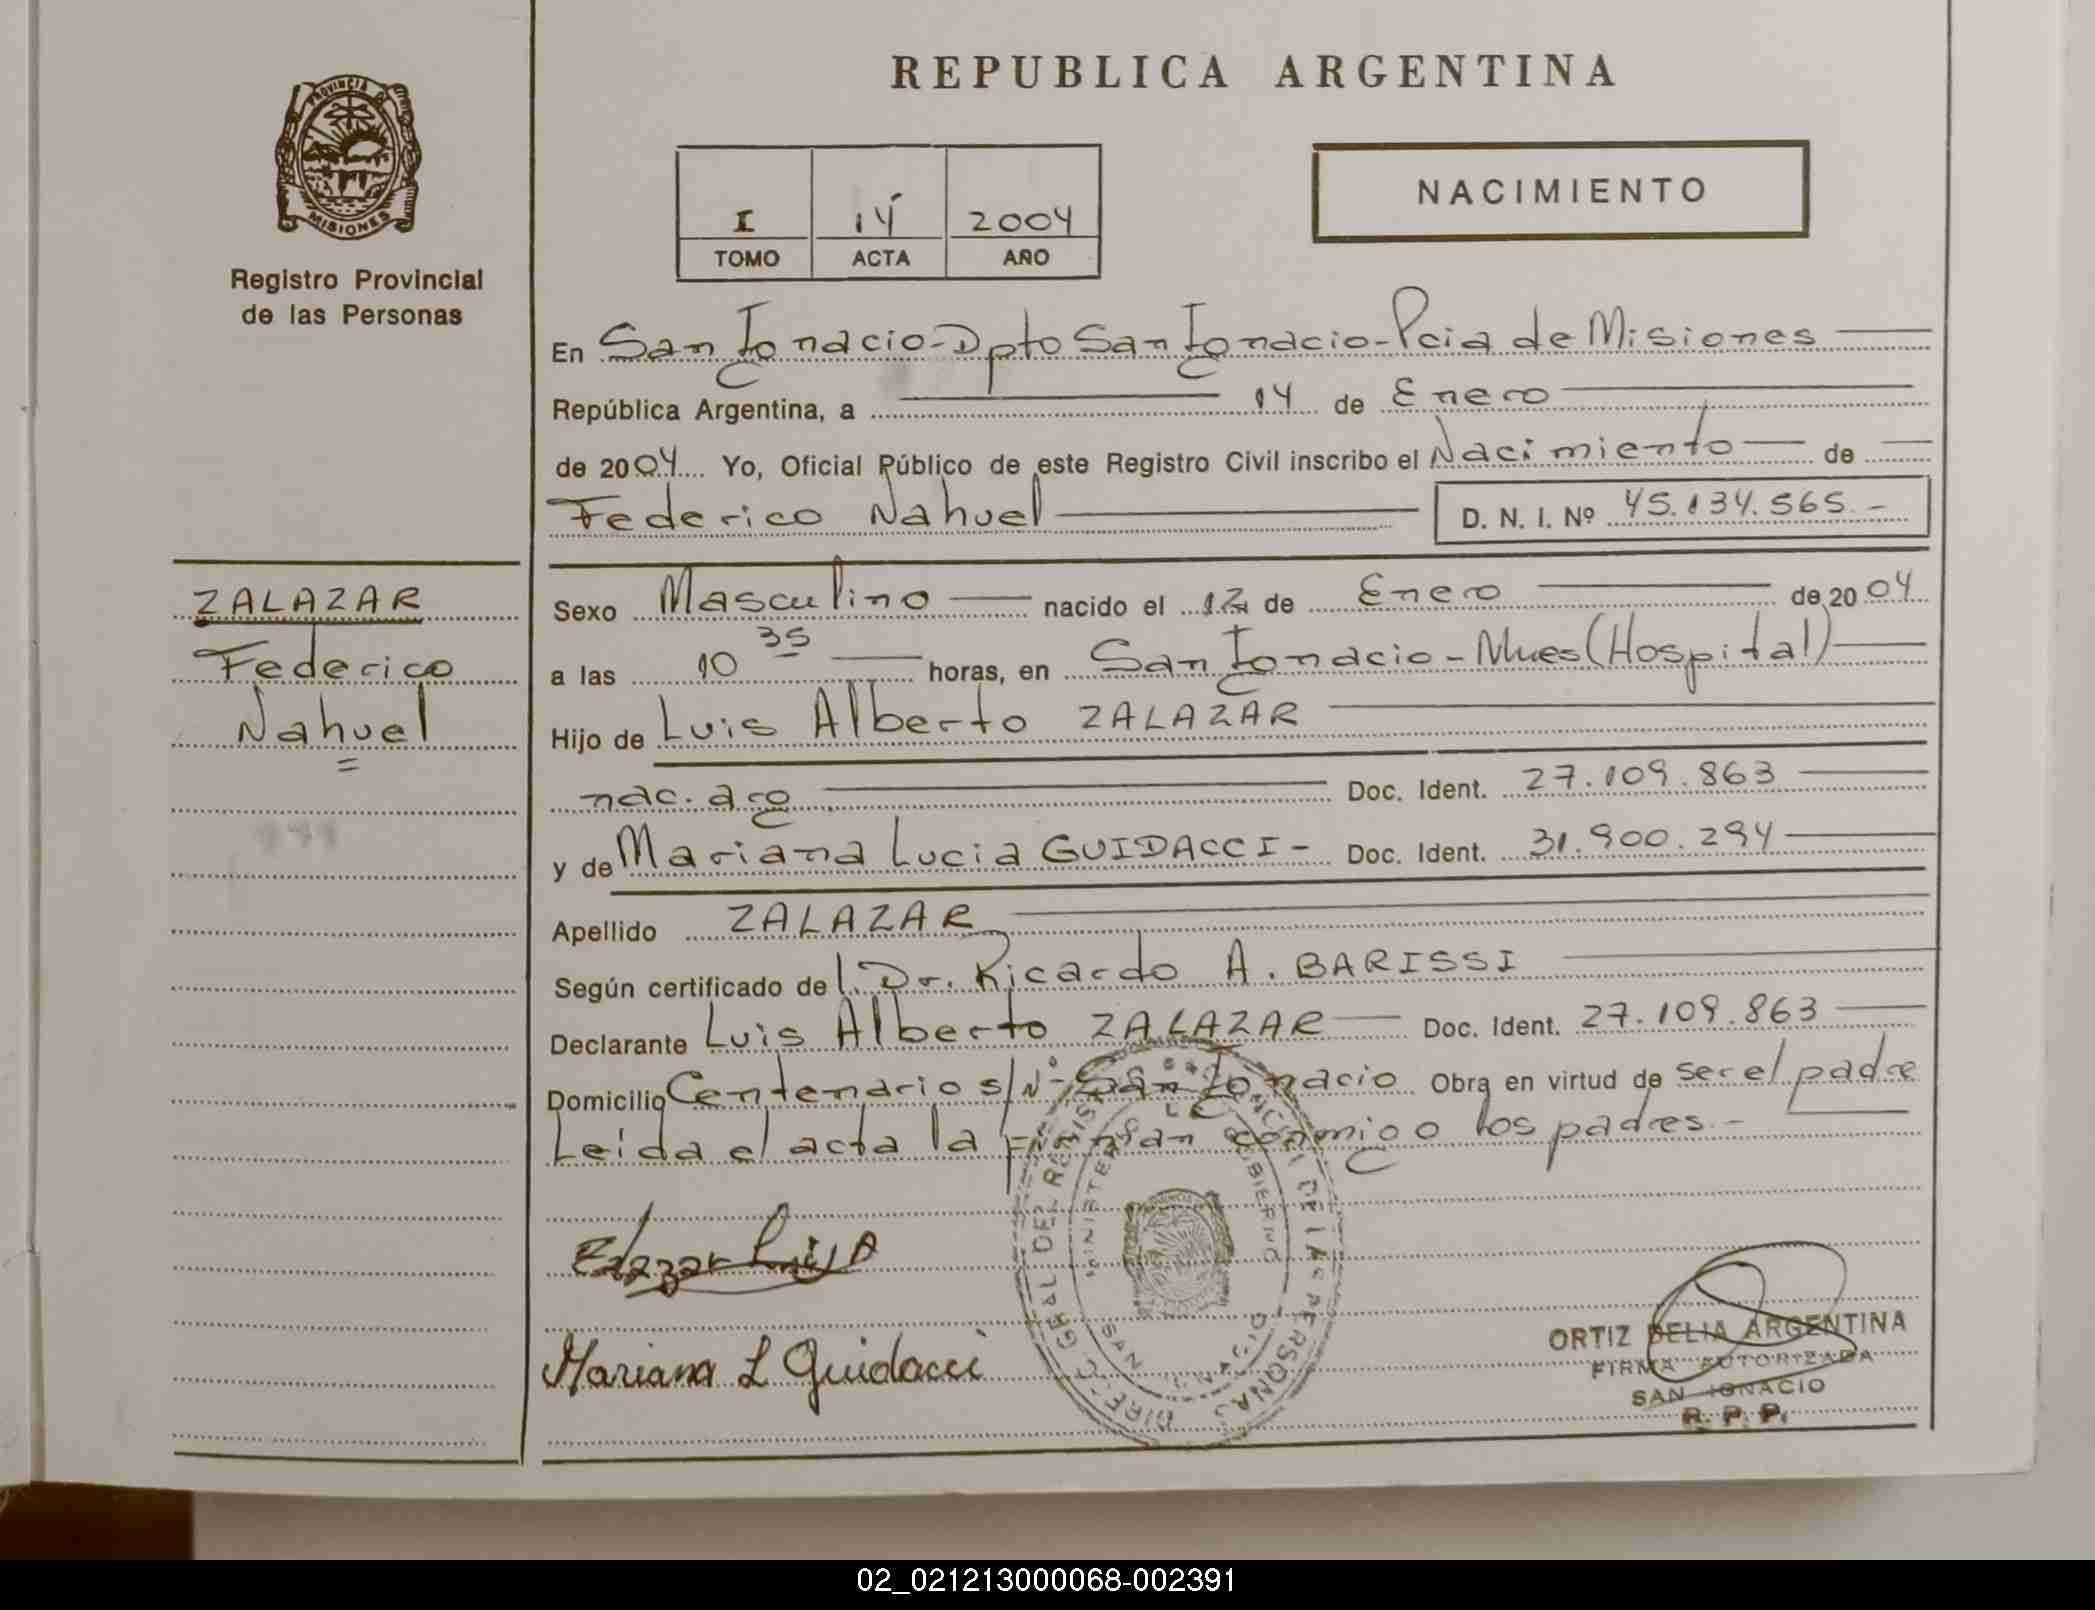 REPUBLICA ARGENTINA
PROVINCIA DE
MISIONES
Registro Provincial
de las Personas
I 14 2004
TOMO ACTA AÑO
NACIMIENTO
En San Ignacio-Dpto San Ignacio-Pcia de Misiones
República Argentina, a 14 de Enero
de 2004 Yo, Oficial Público de este Registro Civil inscribo el Nacimiento de
Federico Nahuel D. N. I. Nº 45.134.565.-
ZALAZAR
Federico
Nahuel
Sexo Masculino nacido el 12 de Enero de 2004
a las 10 35 horas, en San Ignacio-Mnes (Hospital)
Hijo de Luis Alberto ZALAZAR
nac. arg Doc. Ident. 27.109.863
y de Mariana Lucia GUIDACCI- Doc. Ident. 31.900.294
Apellido ZALAZAR
Según certificado de l. Dr. Ricardo A. BARISSI
Declarante Luis Alberto ZALAZAR Doc. Ident. 27.109.863
Domicilio Centenario s/Nº San Ignacio Obra en virtud de ser el padre
Leída el acta la firman conmigo los padres.-
Zalazar Luis A
Mariana L Guidacci
ORTIZ DELIA ARGENTINA
FIRMA AUTORIZADA
SAN IGNACIO
R. P. P.
02_021213000068-002391